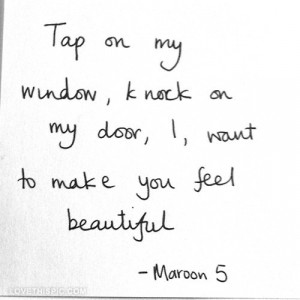 Tap on my
window, knock on
my door, I, want
to make you feel
beautiful
- Maroon 5
LOVETHISPIC.COM